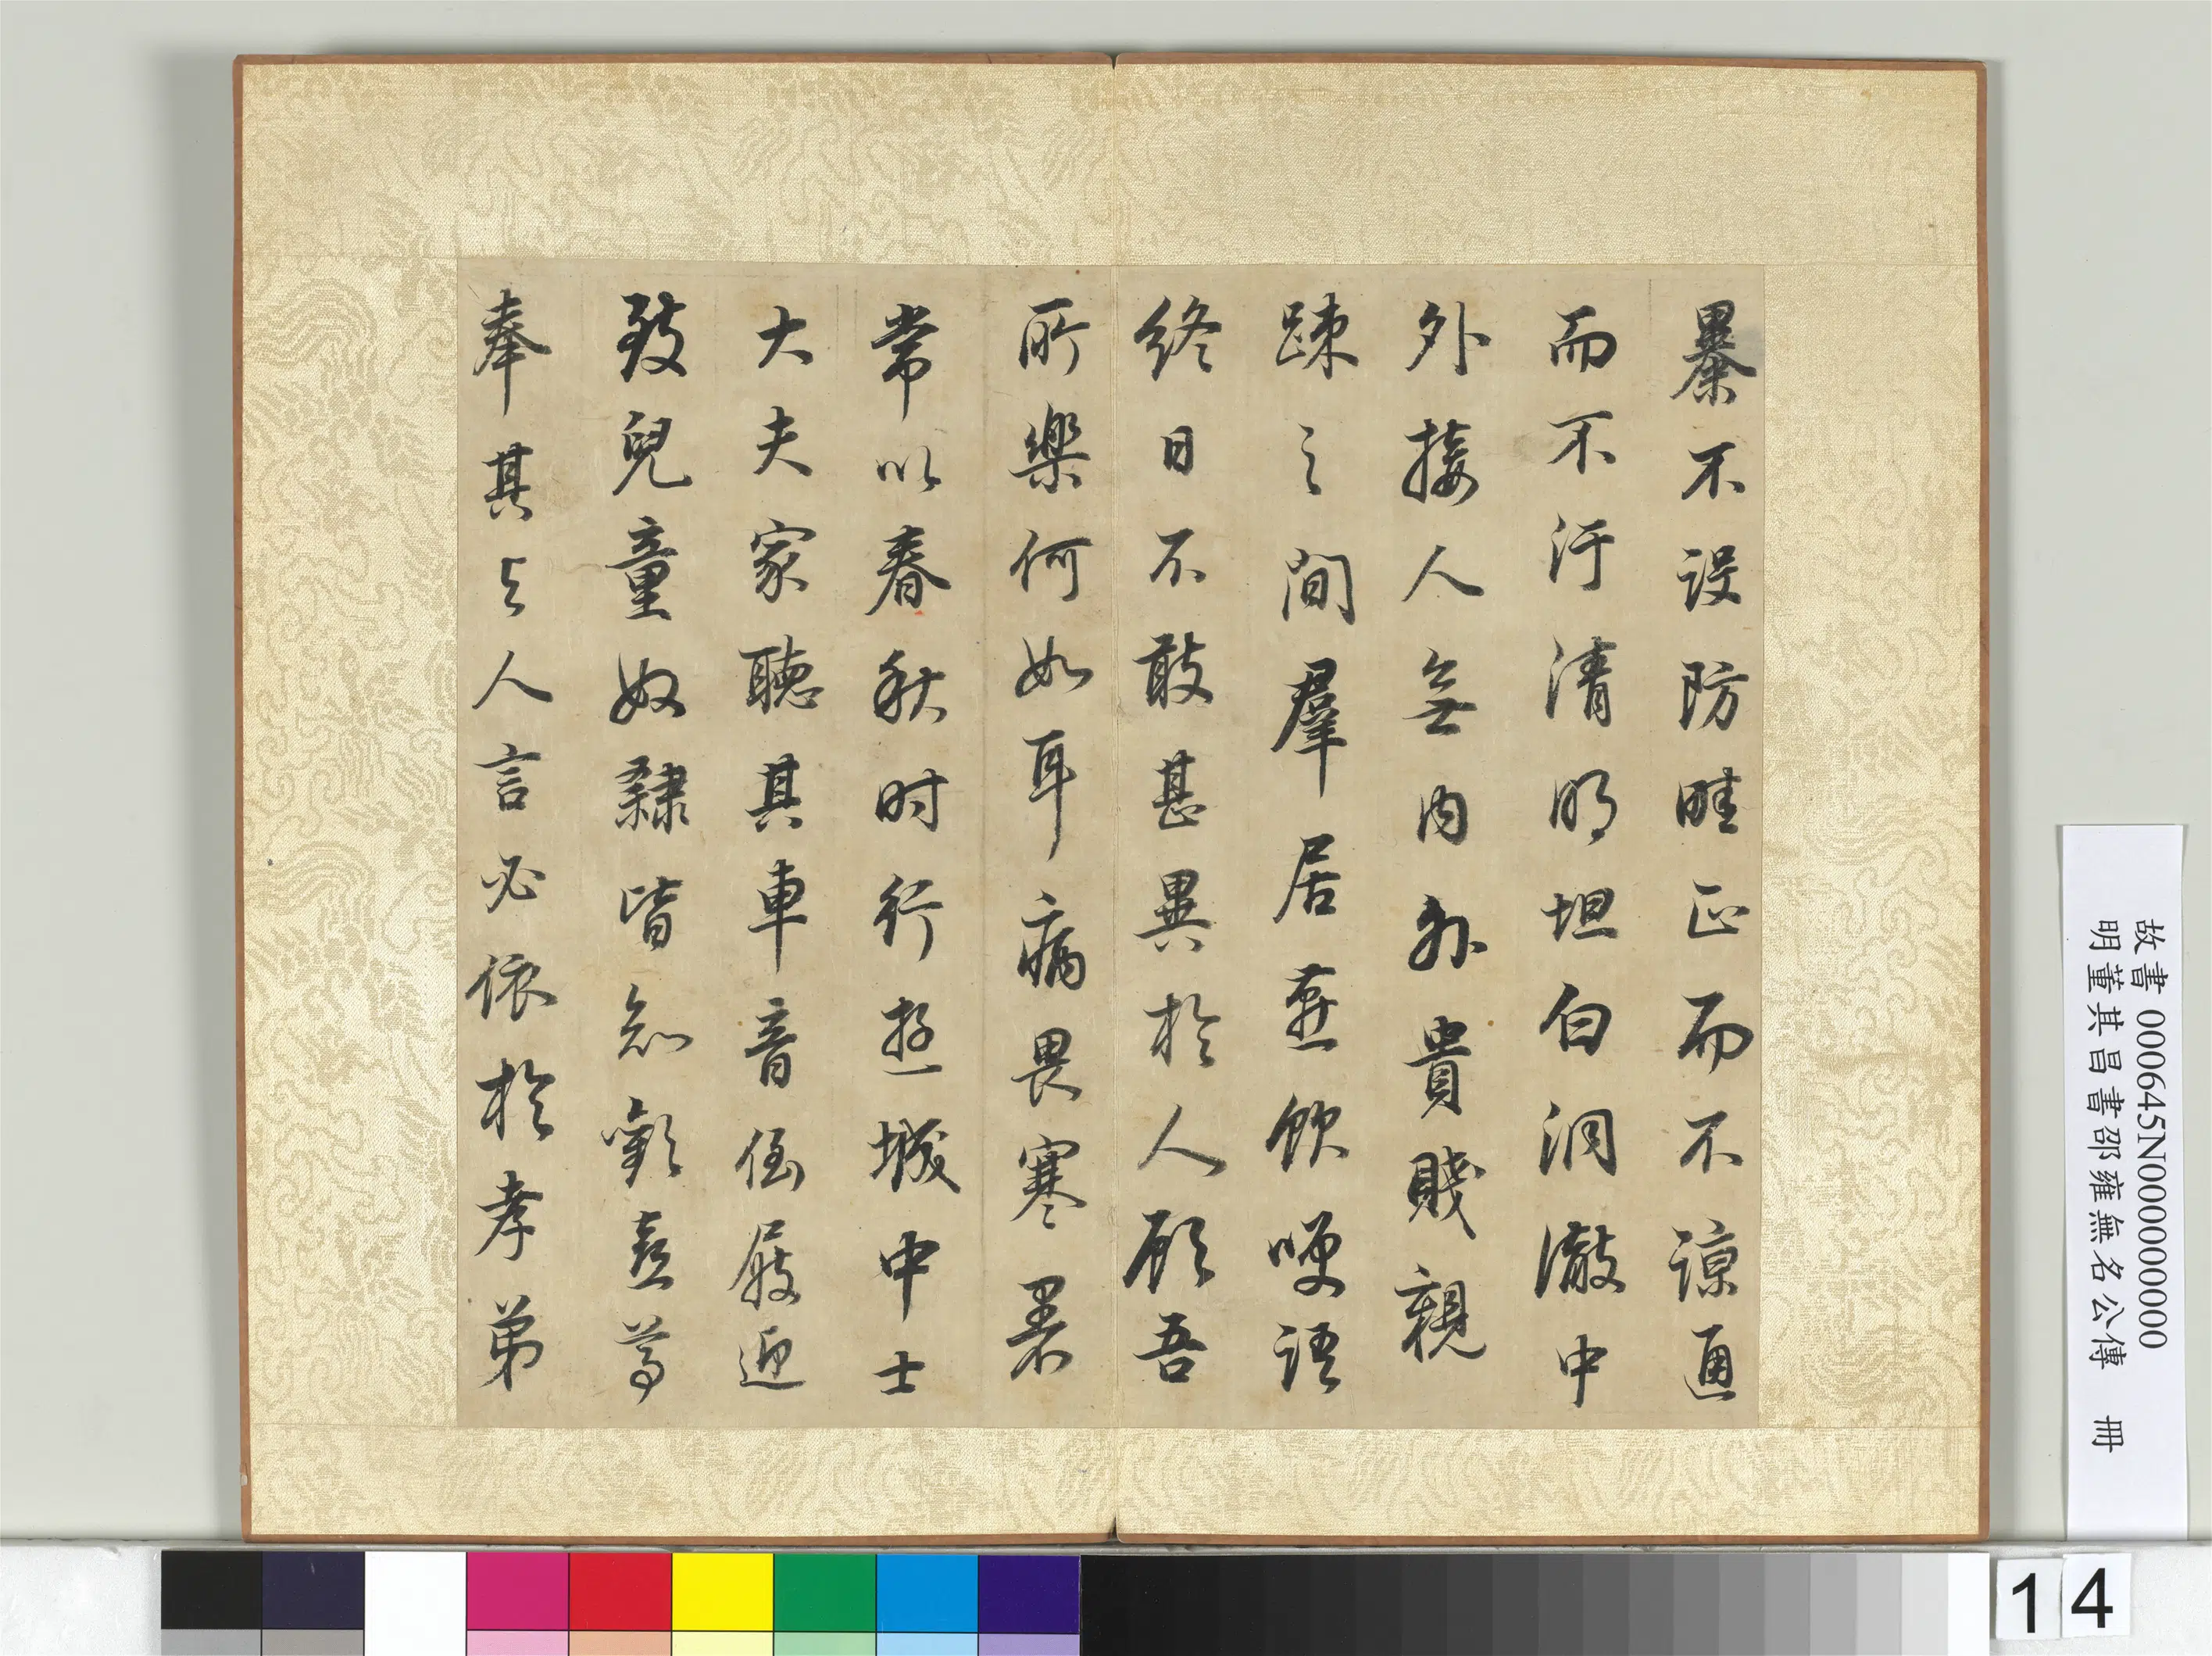 暴不設防畦正而不諒通
而不汙清明坦白洞澈中
外接人無内外貴賤親
踈之間羣居燕飲咲語
終日不敢甚異於人顧吾
所樂何如耳病畏寒暑
常以春秋时行遊城中士
大夫家聽其車音倒屐迎
致兒童奴隸皆知歡喜尊
奉其与人言必依於孝弟
故書 000645N000000000
明董其昌書邵雍無名公傳 冊
14